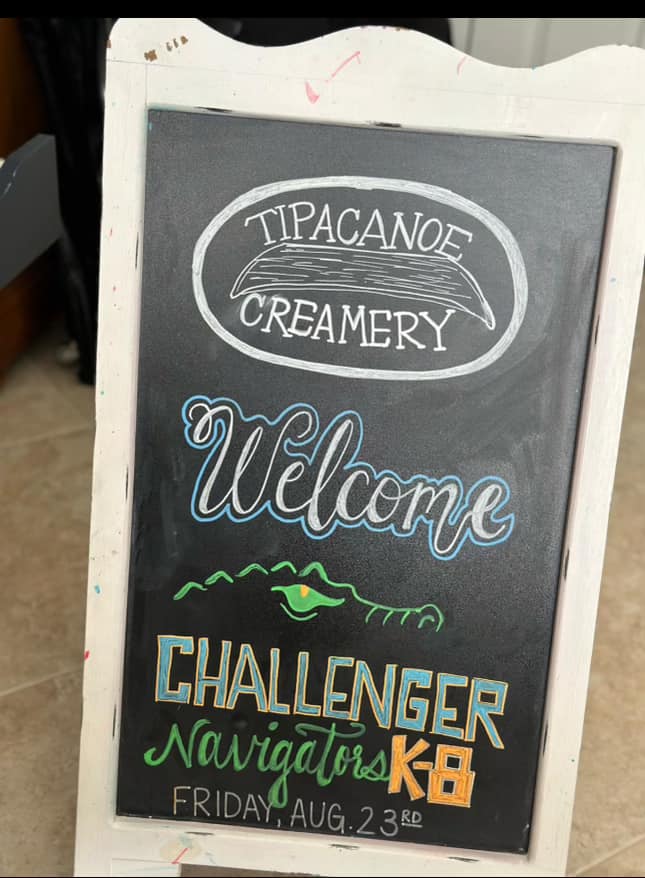 TIPACANOE
CREAMERY
Welcome
CHALLENGER
Navigators K-8
FRIDAY, AUG. 23RD